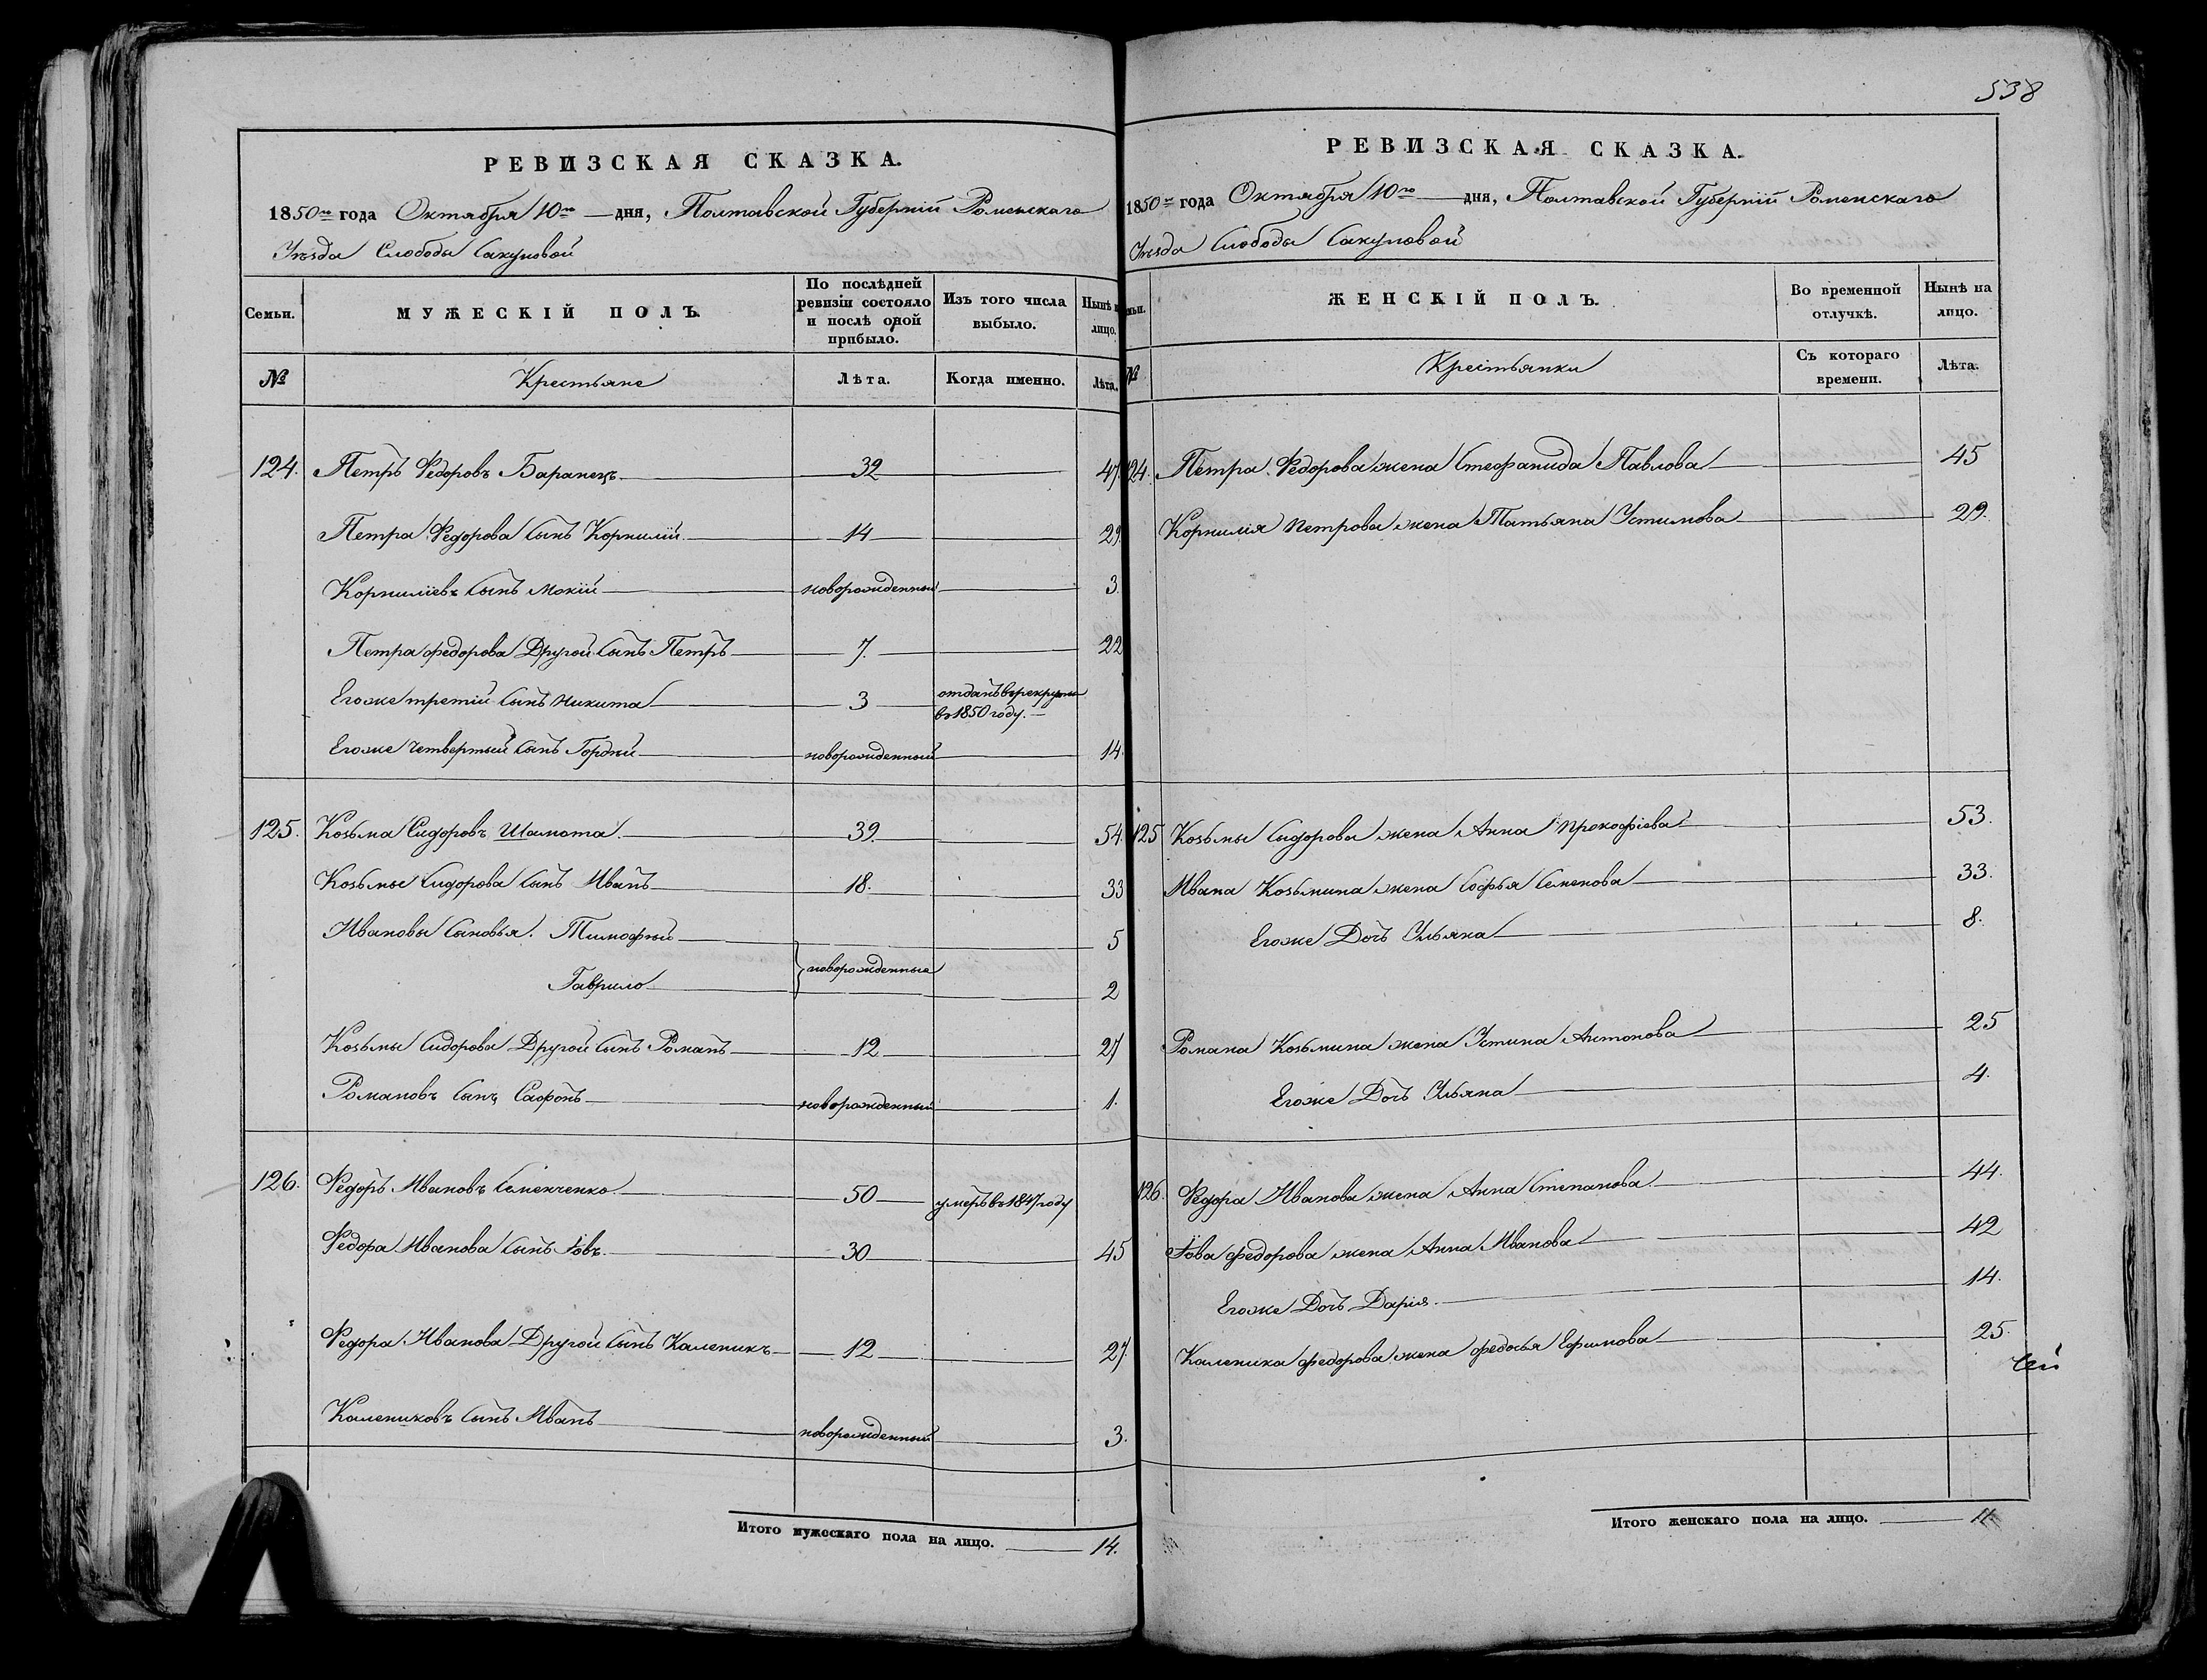 538
РЕВИЗСКАЯ СКАЗКА.
1850го года Октября 10го дня, Полтавской Губерніи Роменскаго
Уѣзда Слободы Сакуновой
Семьи.
МУЖЕСКІЙ ПОЛЪ.
По послѣдней ревизіи состояло и послѣ оной прибыло.
Изъ того числа выбыло.
Нынѣ на лицо.
№
Крестьяне
Лѣта.
Когда именно.
Лѣта.
124. Петръ Ѳедоровъ Баранецъ 32 47.
Петра Ѳедорова сынъ Корнилій 14 29.
Корниліевъ сынъ Мокій новорожденный 3.
Петра Федорова Другой сынъ Петръ 7. 22
Егоже третій сынъ Никита 3 отданъ в рекруты
въ 1850 году.
Егоже четвертый сынъ Гордѣй новорожденный 14.
125. Козьма Сидоровъ Шамота. 39. 54.
Козьмы Сидорова сынъ Иванъ 18. 33
Ивановы сыновья. Тимофѣй 5
новорожденные
Гаврило 2
Козьмы Сидорова Другой сынъ Романъ 12 27
Романовъ сынъ Сафонъ новорожденный 1.
126. Ѳедоръ Ивановъ Семенченко 50 умеръ въ 1847 году
Ѳедора Иванова сынъ Іовъ. 30 45
Ѳедора Иванова Другой сынъ Каленикъ 12 27.
Калениковъ сынъ Иванъ новорожденный 3.
Итого мужескаго пола на лицо. 14.
РЕВИЗСКАЯ СКАЗКА.
1850го года Октября 10го дня, Полтавской Губерніи Роменскаго
Уѣзда Слободы Сакуновой
ЖЕНСКІЙ ПОЛЪ.
Во временной отлучкѣ.
Нынѣ на лицо.
№
Крестьянки
Съ котораго времени.
Лѣта.
124. Петра Ѳедорова жена Стефанида Павлова 45
Корнилія Петрова жена Татьяна Устимова 29.
125 Козьмы Сидорова жена Анна Прокофіева 53.
Ивана Козьмина жена Софья Семенова 33.
Егоже Дочь Ульяна 8.
Романа Козьмина жена Устина Антонова 25
Егоже Дочь Ульяна 4.
126. Ѳедора Иванова жена Анна Степанова 44.
Іова Федорова жена Анна Иванова 42
Егоже Дочь Дарія. 14.
Каленика Федорова жена Федосья Ефимова 25.
Итого женскаго пола на лицо. 11.